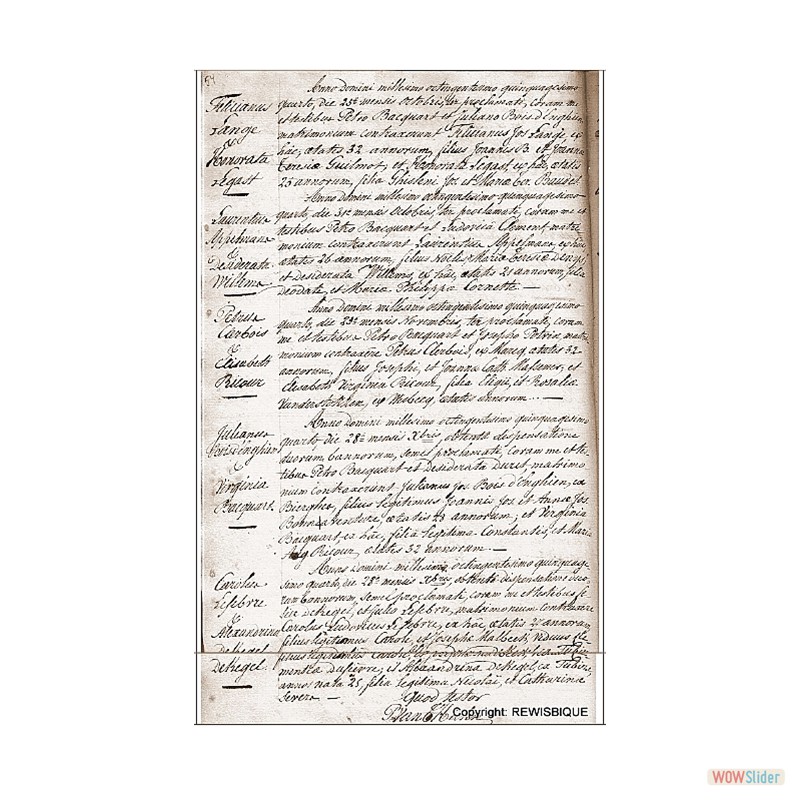 94
Felicianus
Lange
&
Honorata
Legast
Anno Domini millesimo octingentesimo quinquagesimo
quarto, die 25â mensis Octobris, ter proclamati, coram me
et testibus Petro Bacquart et Juliano Bois d'Enghien
matrimonium contraxerunt Felicianus Jos Lange, ex
hâc, ætatis 32 annorum, filius Joannis B. et Joanna
Teresiæ Guilmot, et Honorata Legast ex hâc, ætatis
25 annorum, filia Ghisleni Jos. et Mariæ
Laurentius
Appelmans
&
Desiderata
Willems
Anno Domini millesimo octingentesimo quinquagesimo
quarto, die 31â mensis Octobris, ter proclamati, coram me et
testibus Petro Bacquart et Ludovica Clement, matri-
monium contraxerunt Laurentius Appelmans, ex hâc
ætatis 26 annorum, filius et Maria Teresiæ
et Desiderata Willems, ex hâc, ætatis 21 annorum, filia
Deodate, et Maria Philippa Cornette. —
Petrus
Clerbois
&
Elisabeth
Ricour
Anno Domini millesimo octingentesimo quinquagesimo
quarto, die 29â mensis Novembris, ter proclamati, coram
me et testibus Petro Bacquart et Josepho Potvin, matri-
monium contraxêre Petrus Clerbois, ex Marcq, ætatis 32
annorum, filius Josephi, et Joanna Cath. et
Elisabeth Virginia Ricour, filia Eligii, et Rosalia
ex ætatis annorum... —
Julianus
Bois d'Enghien
&
Virginia
Bacquart
Anno Domini millesimo octingentesimo quinquagesimo
quarto, die 28â mensis Xbris, obtentâ dispensatione
duorum bannorum, semel proclamati, coram me et tes-
tibus Petro Bacquart et Desiderata Duret, matrimo-
nium contraxerunt Julianus Jos. Bois d'Enghien, ex
Bierghes, filius legitimus Joannis Jos. et Annæ Jos.
Bonnaventure, ætatis 23 annorum, et Virginia
Bacquart ex hâc, filia legitima Constantis, et Maria
Aug Ricour, ætatis 32 annorum. —
Carolus
Lefebvre
&
Alexandrina
DeKegel
DeKegel.
Anno Domini millesimo octingentesimo quinquage-
simo quarto, die 28â mensis Xbris, obtentâ dispensatione duo-
rum bannorum, semel proclamati, coram me et testibus
DeKegel, et Julio Lefebvre, matrimonium contraxêre
Carolus Ludovicus Lefebvre, ex hâc ætatis annorum,
filius legitimus Caroli, et Josepha viduus
et Alexandrina DeKegel, ex Tubize,
annos nata 25, filia legitima Nicolai, et Catharina
—
Quod testor
Copyright: REWISBIQUE
WOWSlider